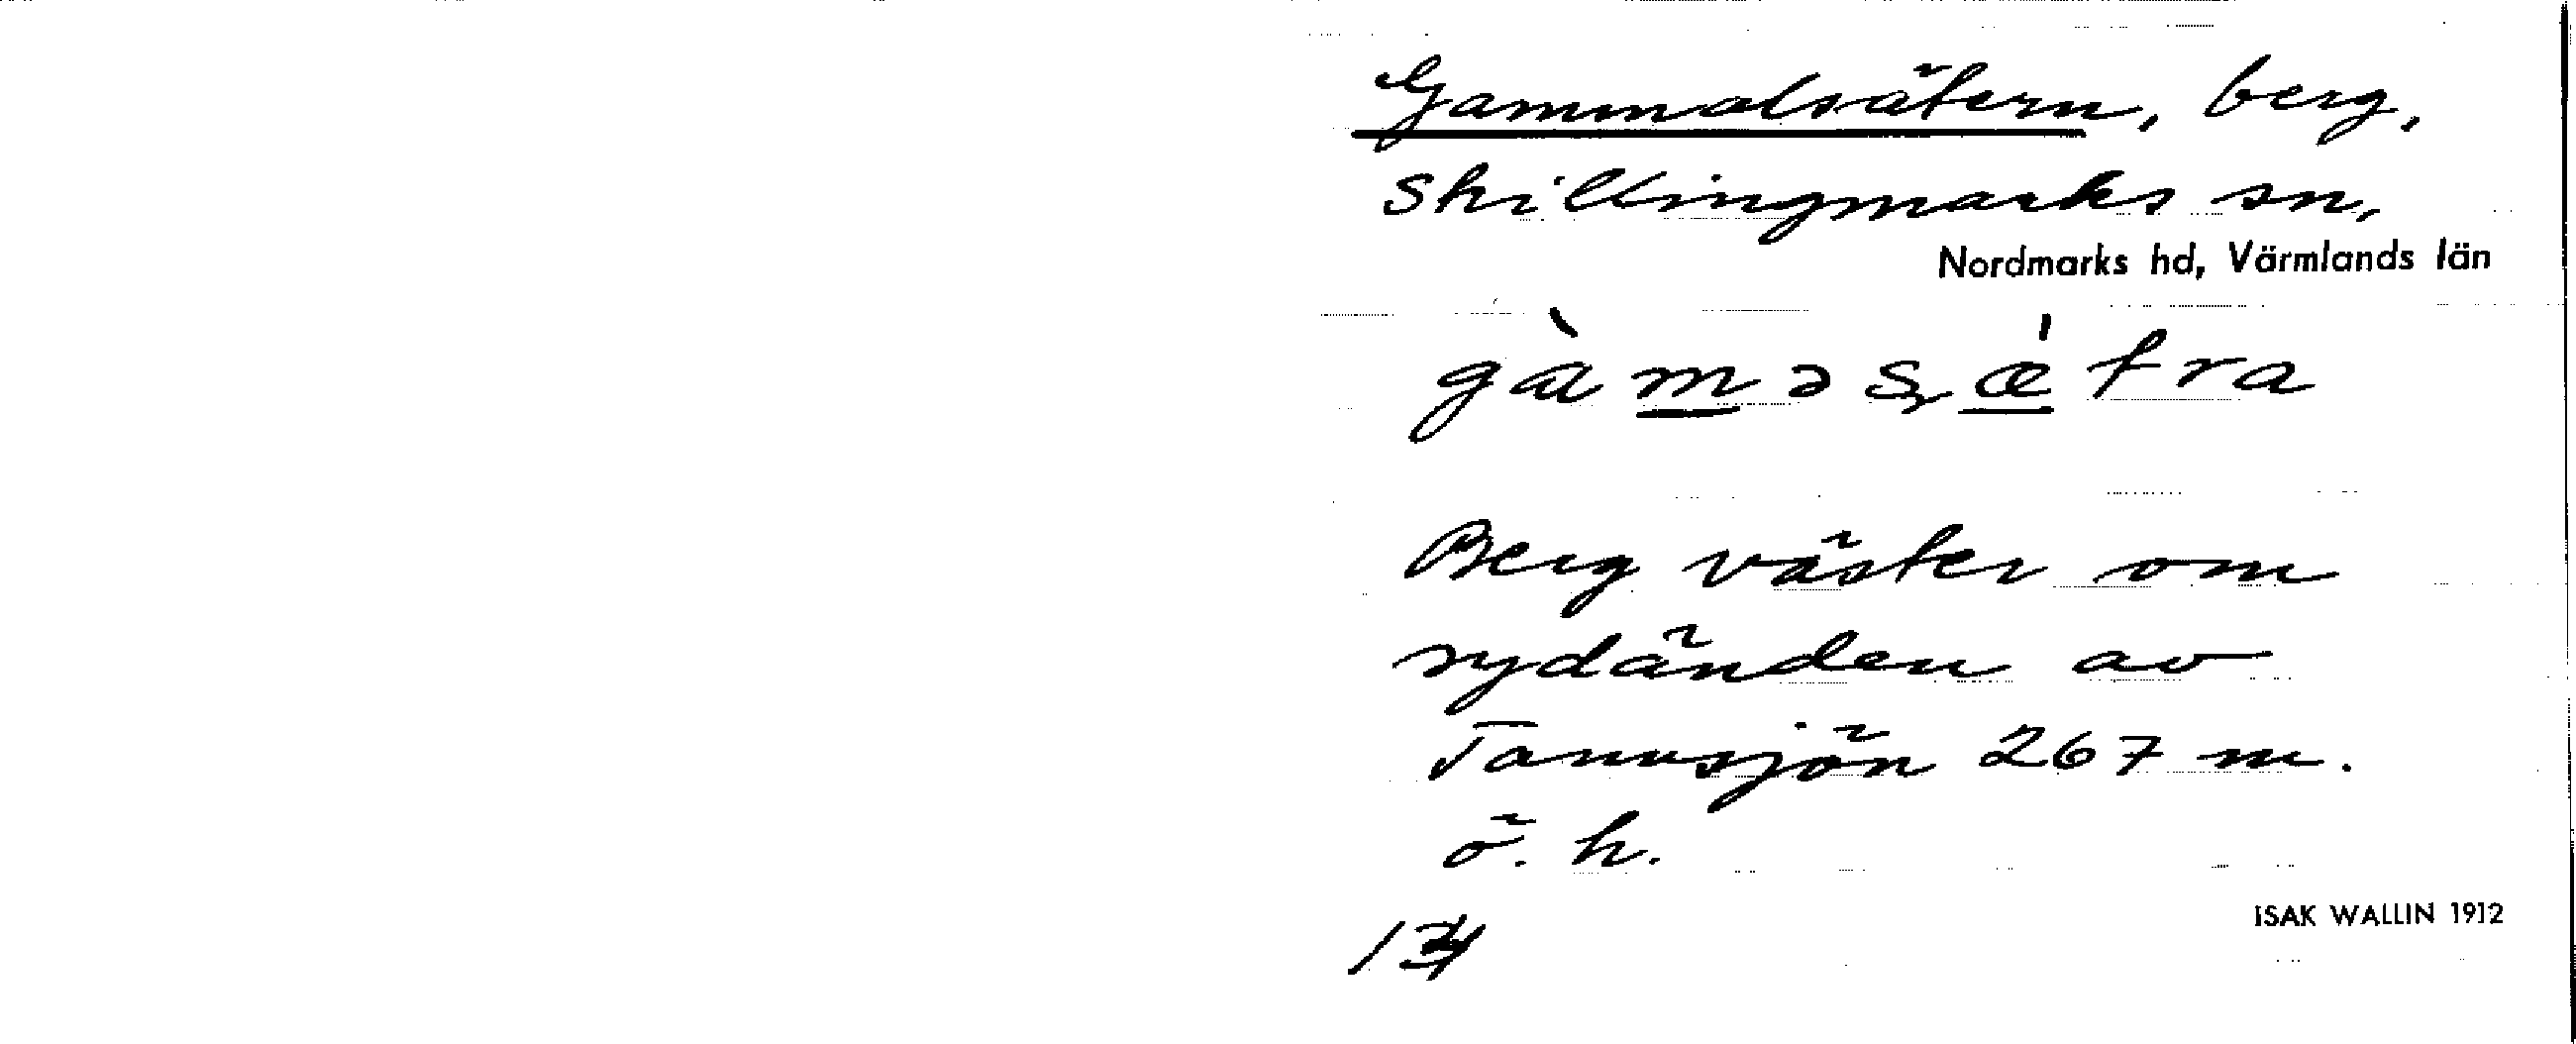 Gammalsätern, berg,
Skillingmarks sn,
Nordmarks hd, Värmlands län
gàməsǽtra
Berg väster om
sydänden av
Tannsjön 267 m.
ö. h.
ISAK WALLIN 1912